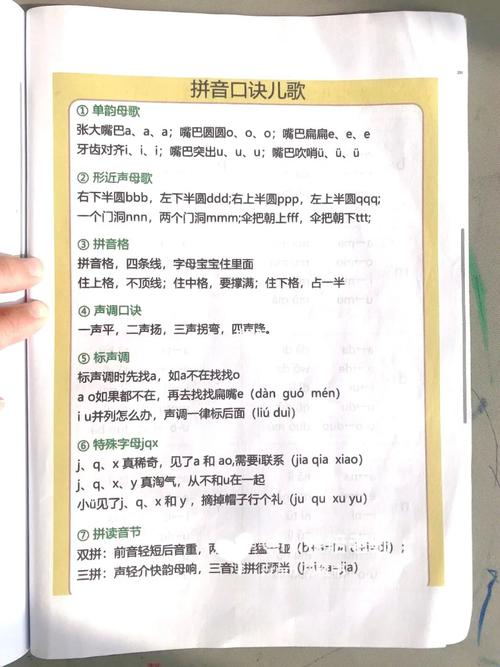 拼音口诀儿歌
① 单韵母歌
张大嘴巴a、a、a；嘴巴圆圆o、o、o；嘴巴扁扁e、e、e
牙齿对齐i、i、i；嘴巴突出u、u、u；嘴巴吹哨ü、ü、ü
② 形近声母歌
右下半圆bbb，左下半圆ddd;右上半圆ppp，左上半圆qqq;
一个门洞nnn，两个门洞mmm;伞把朝上fff，伞把朝下ttt;
③ 拼音格
拼音格，四条线，字母宝宝住里面
住上格，不顶线；住中格，要撑满；住下格，占一半
④ 声调口诀
一声平，二声扬，三声拐弯，四声降。
⑤ 标声调
标声调时先找a，如a不在找找o
a o如果都不在，再去找找扁嘴e（dàn guó mén）
i u并列怎么办，声调一律标后面（liú duì）
⑥ 特殊字母jqx
j、q、x 真稀奇，见了a 和 ao,需要i联系（jia qia xiao）
j、q、x、y 真淘气，从不和u在一起
小ü见了j、q、x 和 y ，摘掉帽子行个礼（ju qu xu yu）
⑦ 拼读音节
双拼：前音轻短后音重，两
三拼：声轻介快韵母响，三音连拼很顺当